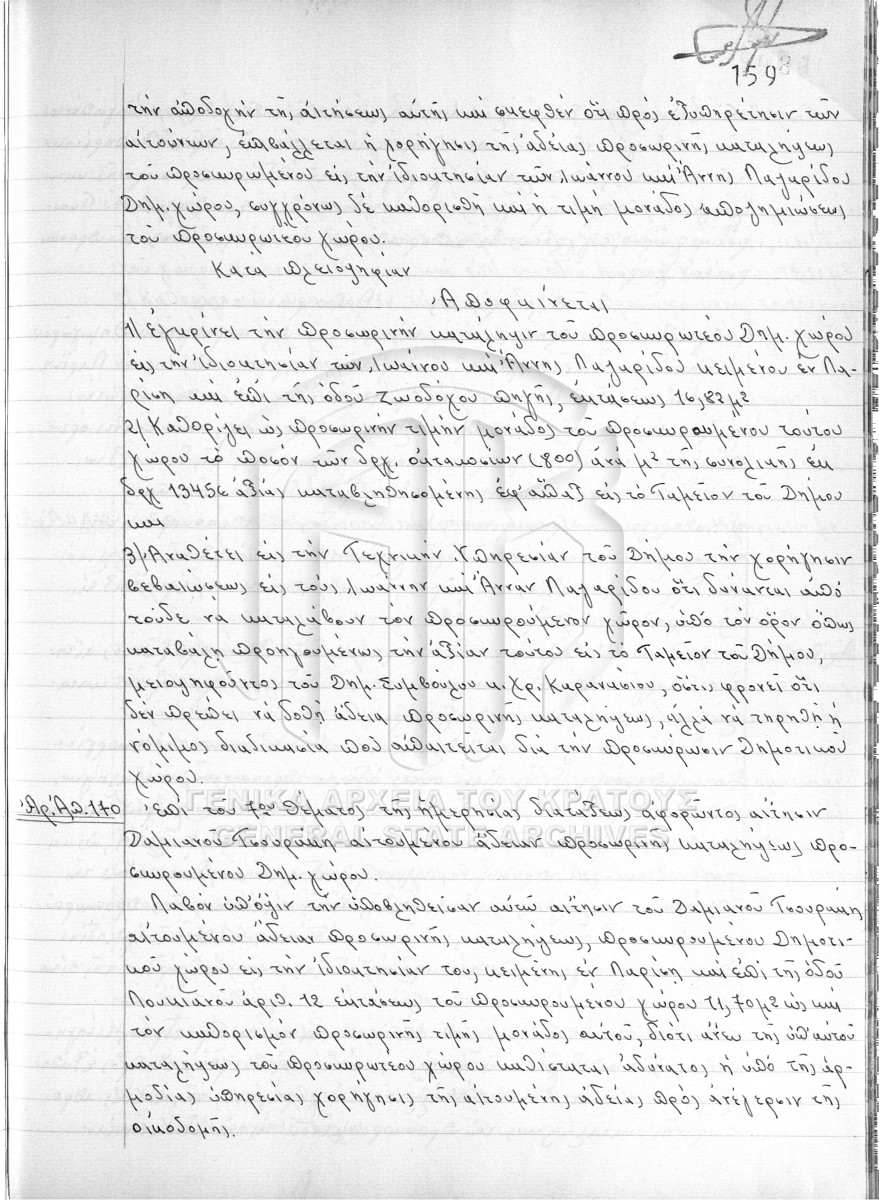 159
τὴν ἀποδοχὴν τῆς αἰτήσεως αὐτῆς καὶ σκεφθὲν ὅτι πρὸς ἐξυπηρέτησιν τῶν
αἰτούντων, ἐπιβάλλεται ἡ χορήγησις τῆς ἀδείας προσωρινῆς καταλήψεως
τοῦ προσκυρωμένου εἰς τὴν ἰδιοκτησίαν τῶν Ἰωάννου καὶ Ἄννης Λαγαρίδου
Δημ. χώρου, συγχρόνως δὲ καθορισθῇ καὶ ἡ τιμὴ μονάδος ἀποζημιώσεως
τοῦ προσκυρωτέου χώρου.
Κατὰ πλειοψηφίαν
Ἀποφαίνεται
1) Ἐγκρίνει τὴν προσωρινὴν κατάληψιν τοῦ προσκυρωτέου Δημ. χώρου
εἰς τὴν ἰδιοκτησίαν τῶν Ἰωάννου καὶ Ἄννης Λαγαρίδου κειμένου ἐν Λα-
ρίσῃ καὶ ἐπὶ τῆς ὁδοῦ Ζωοδόχου Πηγῆς, ἐκτάσεως 16,82 μ²
2) Καθορίζει ὡς προσωρινὴν τιμὴν μονάδος τοῦ προσκυρουμένου τούτου
χώρου τὸ ποσὸν τῶν δρχ. ὀκτακοσίων (800) ἀνὰ μ² τῆς συνολικῆς ἐκ
δρχ 13456 ἀξίας καταβληθησομένης ἐφ' ἅπαξ εἰς τὸ Ταμεῖον τοῦ Δήμου
καὶ
3) Ἀναθέτει εἰς τὴν Τεχνικὴν Ὑπηρεσίαν τοῦ Δήμου τὴν χορήγησιν
βεβαιώσεως εἰς τοὺς Ἰωάννην καὶ Ἄνναν Λαγαρίδου ὅτι δύνανται ἀπὸ
τοῦδε νὰ καταλάβουν τὸν προσκυρούμενον χῶρον, ὑπὸ τὸν ὅρον ὅπως
καταβάλῃ προηγουμένως τὴν ἀξίαν τούτου εἰς τὸ Ταμεῖον τοῦ Δήμου,
μειοψηφοῦντος τοῦ Δημ. Συμβούλου κ. Χρ. Καρανάσιου, ὅστις φρονεῖ ὅτι
δὲν πρέπει νὰ δοθῇ ἄδεια προσωρινῆς καταλήψεως, ἀλλὰ νὰ τηρηθῇ ἡ
νόμιμος διαδικασία ποὺ ἀπαιτεῖται διὰ τὴν προσκύρωσιν Δημοτικοῦ
χώρου.
ΓΕΝΙΚΑ ΑΡΧΕΙΑ ΤΟΥ ΚΡΑΤΟΥΣ
GENERAL STATE ARCHIVES
Ἀρ. Ἀπ. 170 Ἐπὶ τοῦ 7ου θέματος τῆς ἡμερησίας διατάξεως ἀφορῶντος αἴτησιν
Δαμιανοῦ Τσουράκη αἰτουμένου ἄδειαν προσωρινῆς καταλήψεως προ-
σκυρουμένου Δημ. χώρου.
Λαβὸν ὑπ' ὄψιν τὴν ὑποβληθεῖσαν αὐτῷ αἴτησιν τοῦ Δαμιανοῦ Τσουράκη
αἰτουμένου ἄδειαν προσωρινῆς καταλήψεως, προσκυρουμένου Δημοτι-
κοῦ χώρου εἰς τὴν ἰδιοκτησίαν του, κειμένης ἐν Λαρίσῃ καὶ ἐπὶ τῆς ὁδοῦ
Λουκιανοῦ ἀριθ. 12 ἐκτάσεως τοῦ προσκυρουμένου χώρου 11,70 μ² ὡς καὶ
τὸν καθορισμὸν προσωρινῆς τιμῆς μονάδος αὐτοῦ, διότι ἄνευ τῆς ὑπ' αὐτοῦ
καταλήψεως τοῦ προσκυρωτέου χώρου καθίσταται ἀδύνατος ἡ ὑπὸ τῆς ἁρ-
μοδίας ὑπηρεσίας χορήγησις τῆς αἰτουμένης ἀδείας πρὸς ἀνέγερσιν τῆς
οἰκοδομῆς.